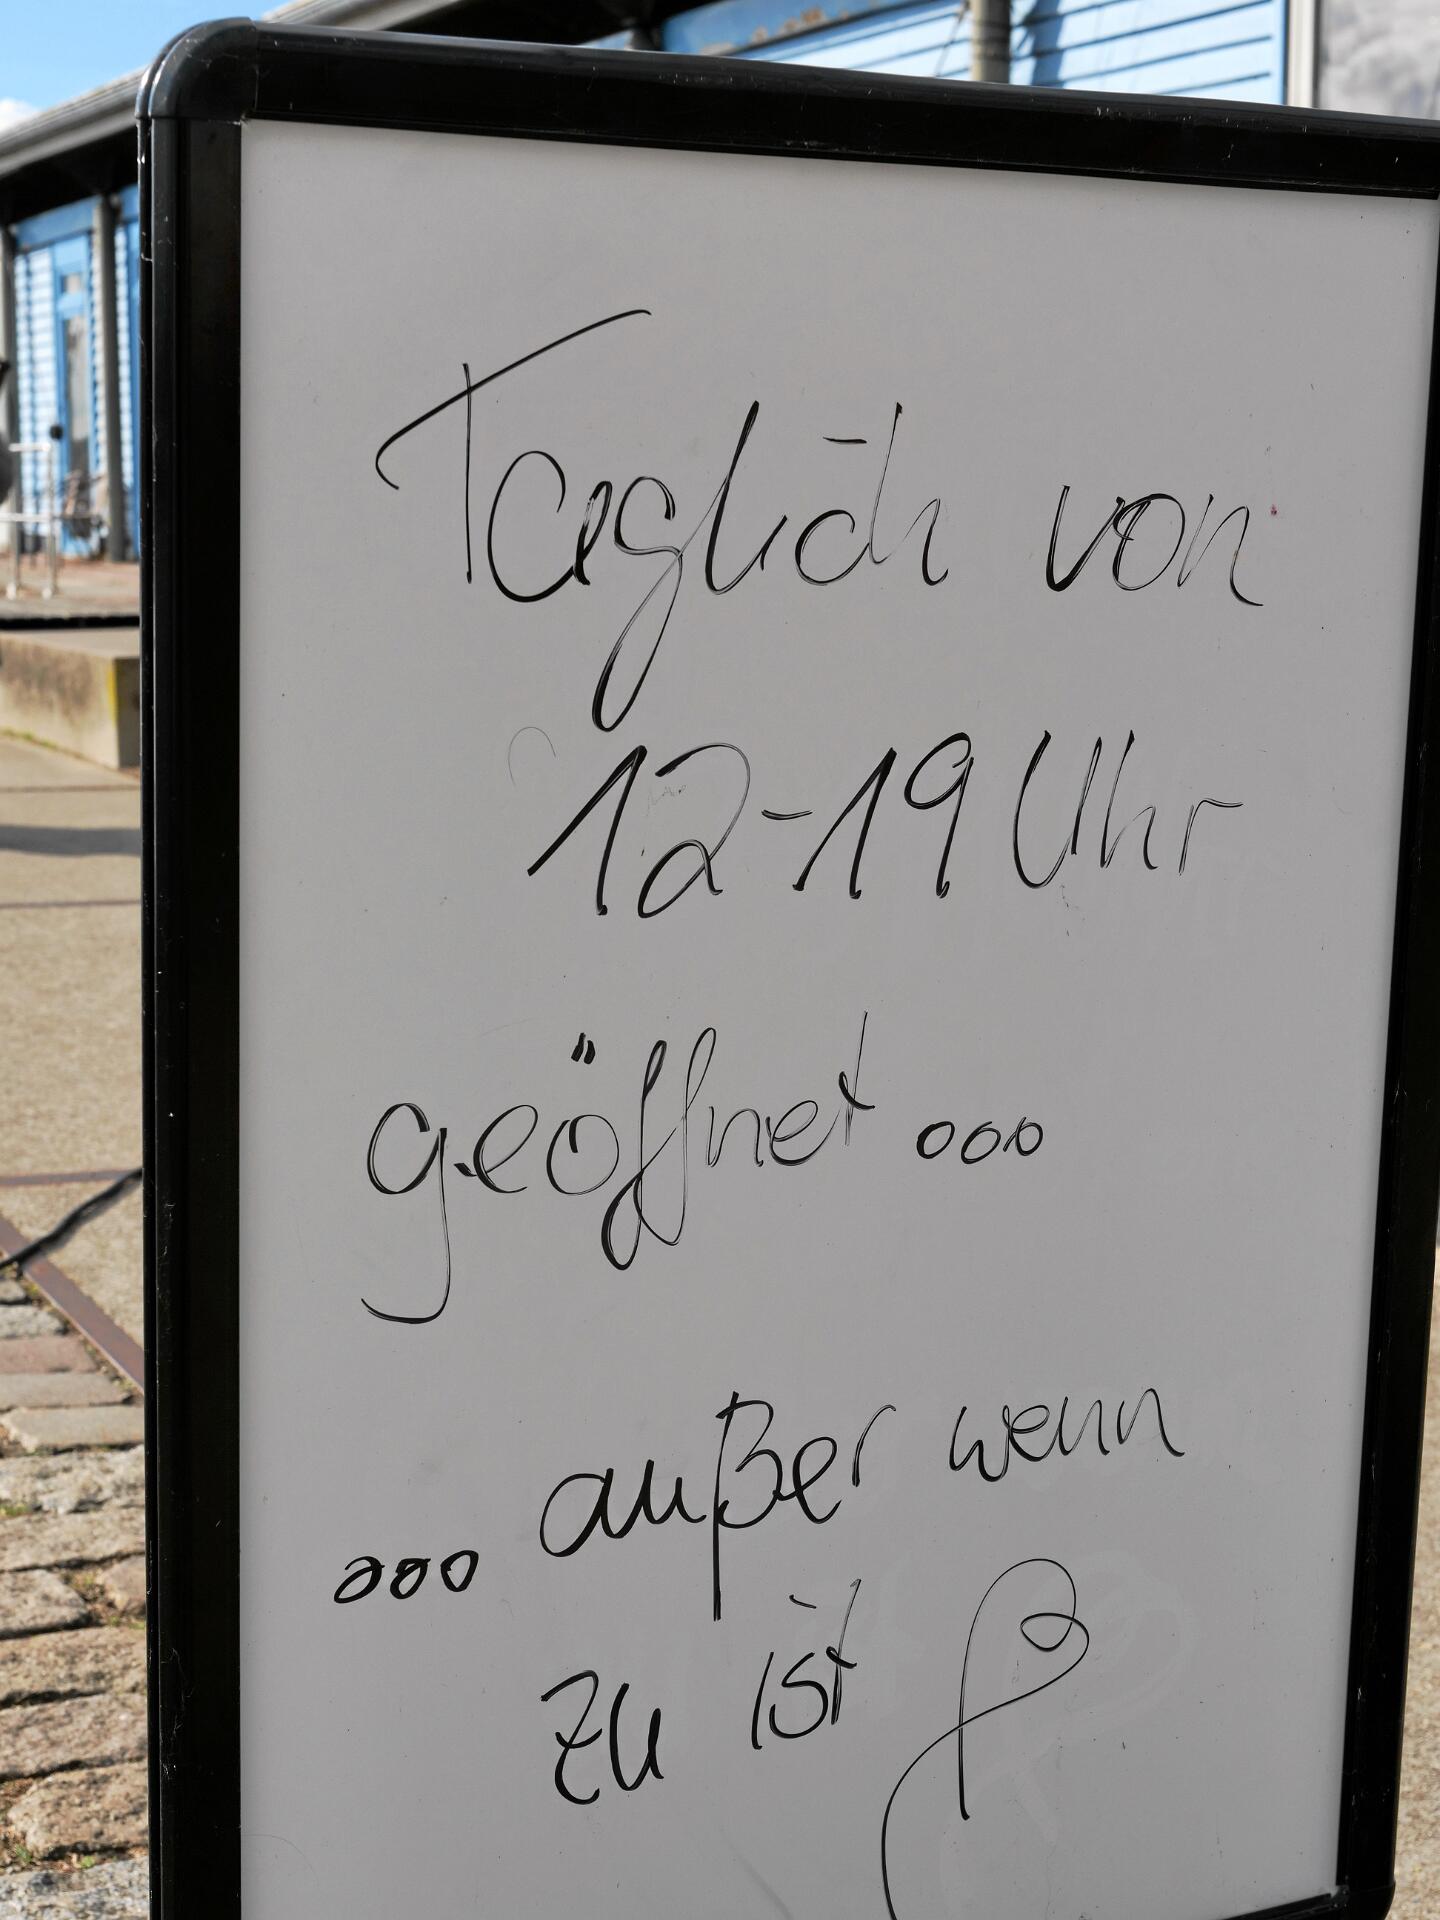 Taglich von
12-19 Uhr
geöffnet ...
... außer wenn
zu ist